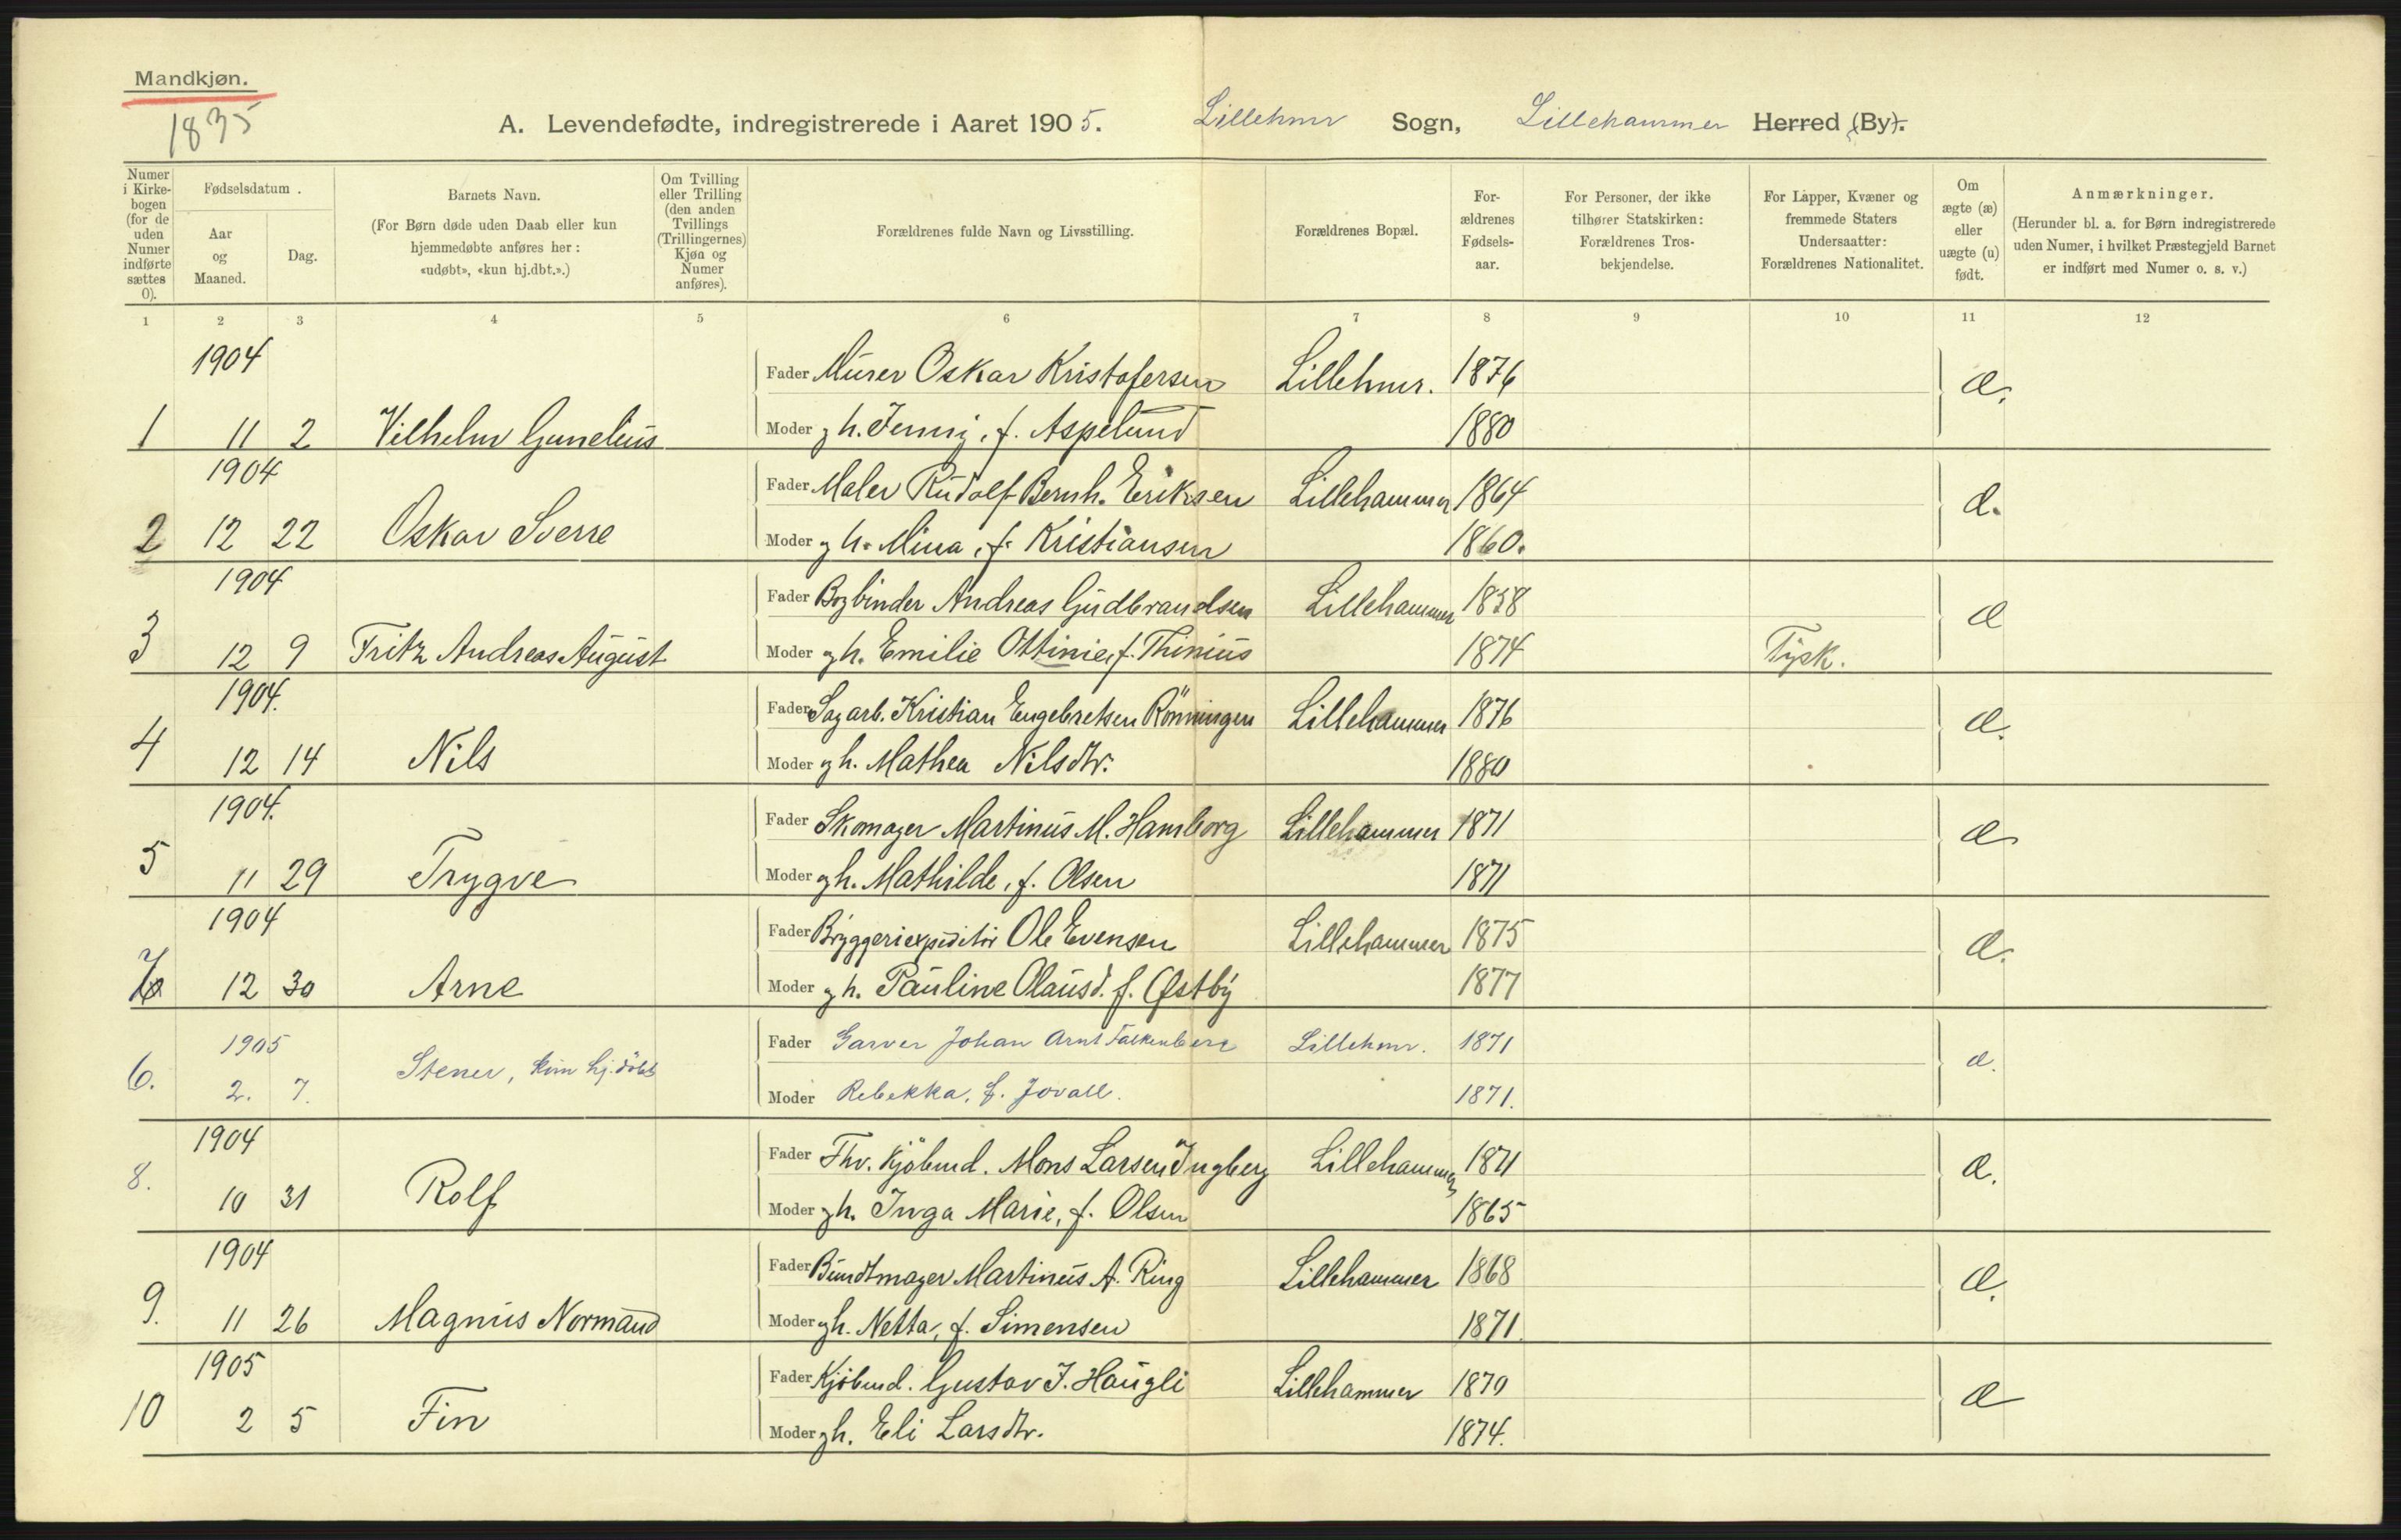 Mandkjøn.
1835
A. Levendefødte, indregistrerede i Aaret 1905. Lillehmr Sogn, Lillehammer Herred (By).
Numer i Kirkebogen (for de uden Numer indførte sættes 0).
Fødselsdatum.
Aar og Maaned.
Dag.
Barnets Navn.
(For Børn døde uden Daab eller kun hjemmedøbte anføres her: «udøbt», «kun hj.dbt.».)
Om Tvilling eller Trilling (den anden Tvillings (Trillingernes) Kjøn og Numer anføres).
Forældrenes fulde Navn og Livsstilling.
Forældrenes Bopæl.
Forældrenes Fødselsaar.
For Personer, der ikke tilhører Statskirken: Forældrenes Trosbekjendelse.
For Lapper, Kvæner og fremmede Staters Undersaatter: Forældrenes Nationalitet.
Om ægte (æ) eller uægte (u) født.
Anmærkninger.
(Herunder bl. a. for Børn indregistrerede uden Numer, i hvilket Præstegjeld Barnet er indført med Numer o. s. v.)
1 2 3 4 5 6 7 8 9 10 11 12
1904 Fader Murer Oskar Kristofersen Lillehmr. 1876 æ.
1 11 2 Vilhelm Gunelius Moder gh. Jenny, f. Aspelund 1880
1904 Fader Maler Rudolf Bernh. Eriksen Lillehammer 1864 æ.
2 12 22 Oskar Sverre Moder gh. Mina, f. Kristiansen 1860.
1904 Fader Bogbinder Andreas Gudbrandsen Lillehammer 1858 æ
3 12 9 Fritz Andreas August Moder gh. Emilie Ottinie, f. Thinius 1874 Tysk.
1904. Fader Sagarb. Kristian Engebretsen Rönningen Lillehammer 1876 æ.
4 12 14 Nils Moder gh. Mathea Nilsdtr. 1880
1904. Fader Skomager Martinus M. Hamborg Lillehammer 1871 æ
5 11 29 Trygve Moder gh. Mathilde, f. Olsen 1871
1904 Fader Bryggeriexpeditör Ole Evensen Lillehammer 1875 æ.
12 30 Arne Moder gh. Pauline Olausd. f. Østby 1877
1905 Fader Garver Johan Arnt Falkenberg Lillehmr. 1871 æ.
6. 2. 7. Stener, kun hj.döbt Moder Rebekka, f. Jovall. 1871.
1904 Fader Fhv. Kjöbmd. Mons Larsen Ingberg Lillehammer 1871 æ.
8. 10 31 Rolf Moder gh. Inga Marie, f. Olsen 1865
1904 Fader Bundtmager Martinus A. Ring Lillehammer 1868 æ.
9. 11 26 Magnus Normand Moder gh. Netta, f. Simensen 1871.
1905 Fader Kjöbmd. Gustav J. Haugli Lillehammer 1870 æ
10 2 5 Fin Moder gh. Eli Larsdtr. 1874.